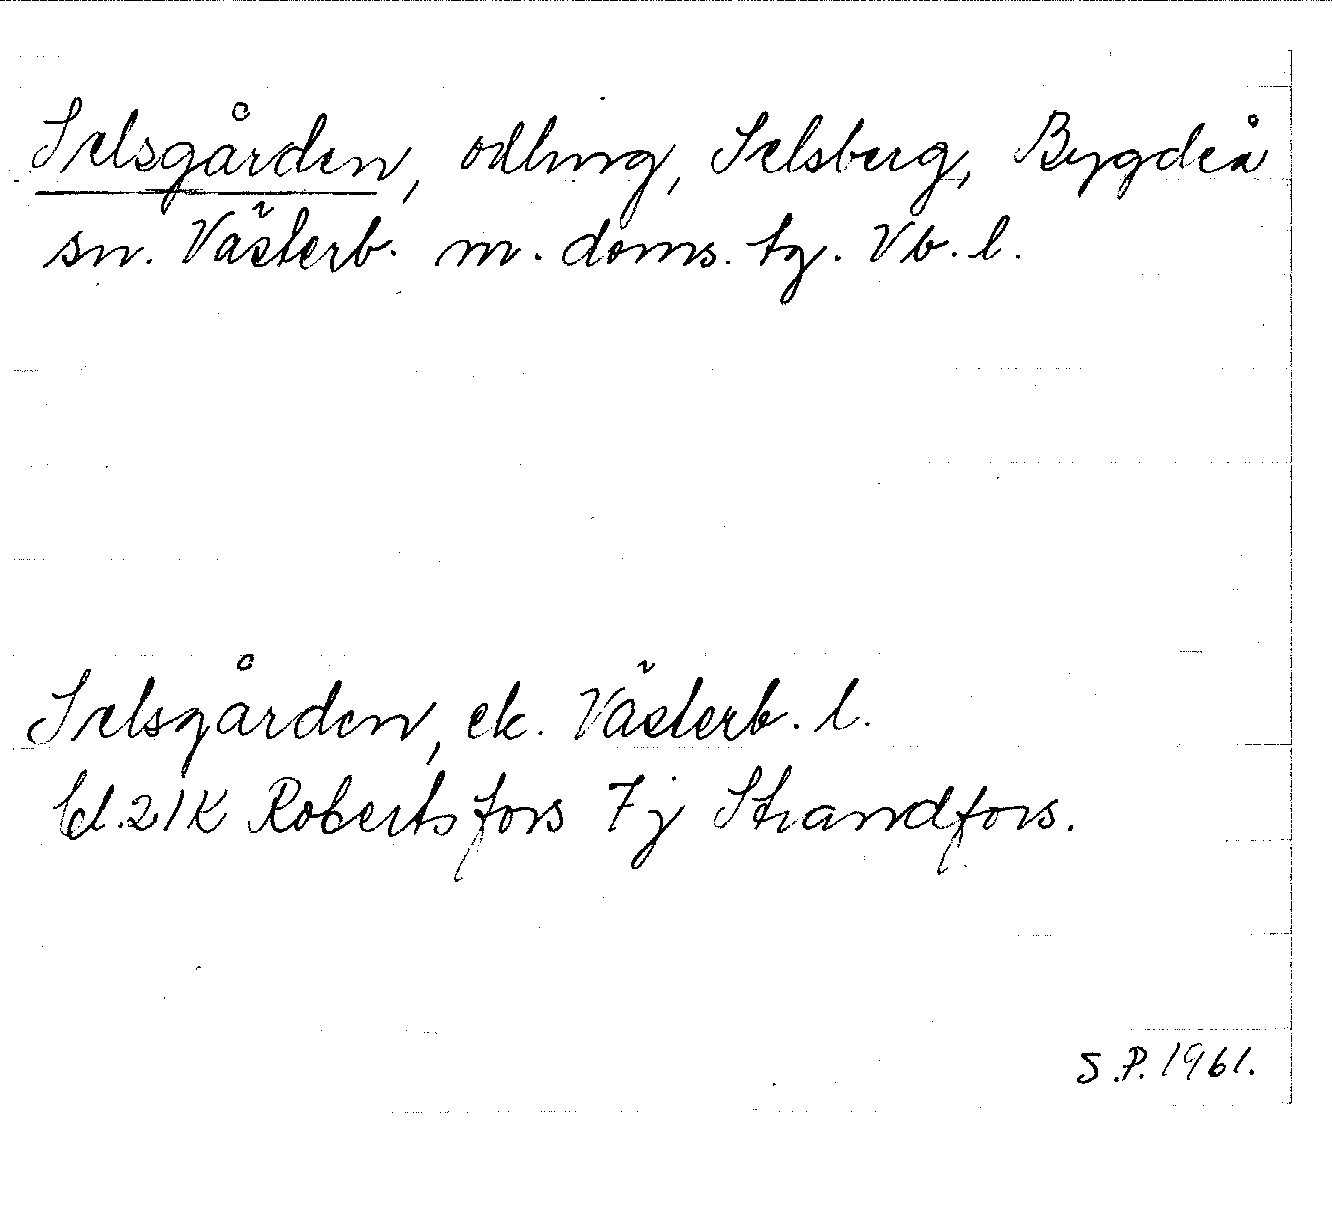 Selsgården, odling, Selsberg, Bygdeå
sn. Västerb. m. doms. tg. Vb. l.
Selsgården, ek. Västerb. l.
bl. 21K Robertsfors 7j Strandfors.
S.P. 1961.